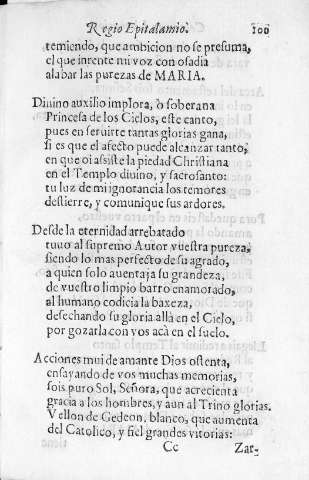 Regio Epitalamio. 100
temiendo, que ambicion no se presuma,
el que intente mi voz con osadia
alabar las purezas de MARIA.
Diuino auxilio implora, ò soberana
Princesa de los Cielos, este canto,
pues en seruirte tantas glorias gana,
si es que el afecto puede alcanzar tanto,
en que oi assiste la piedad Christiana
en el Templo diuino, y sacrosanto:
tu luz de mi ignorancia los temores
destierre, y comunique sus ardores.
Desde la eternidad arrebatado
tuuo al supremo Autor vuestra pureza,
siendo lo mas perfecto de su agrado,
a quien solo auentaja su grandeza,
de vuestro limpio barro enamorado,
al humano codicia la baxeza,
desechando su gloria allà en el Cielo,
por gozarla con vos acà en el suelo.
Acciones mui de amante Dios ostenta,
ensayando de vos muchas memorias,
sois puro Sol, Señora, que acrecienta
gracia a los hombres, y aun al Trino glorias.
Vellon de Gedeon, blanco, que aumenta
del Catolico, y fiel grandes vitorias:
Cc Zar-